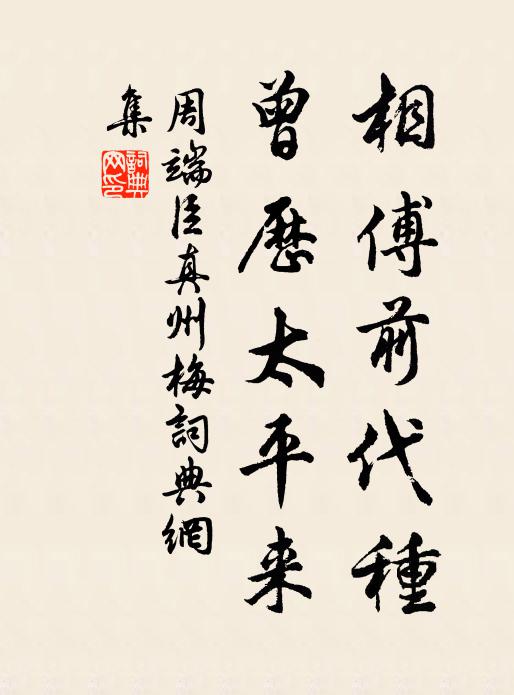 相傅前代種
曾歷太平来
周端臣真州梅詞典網
集
詞典网印